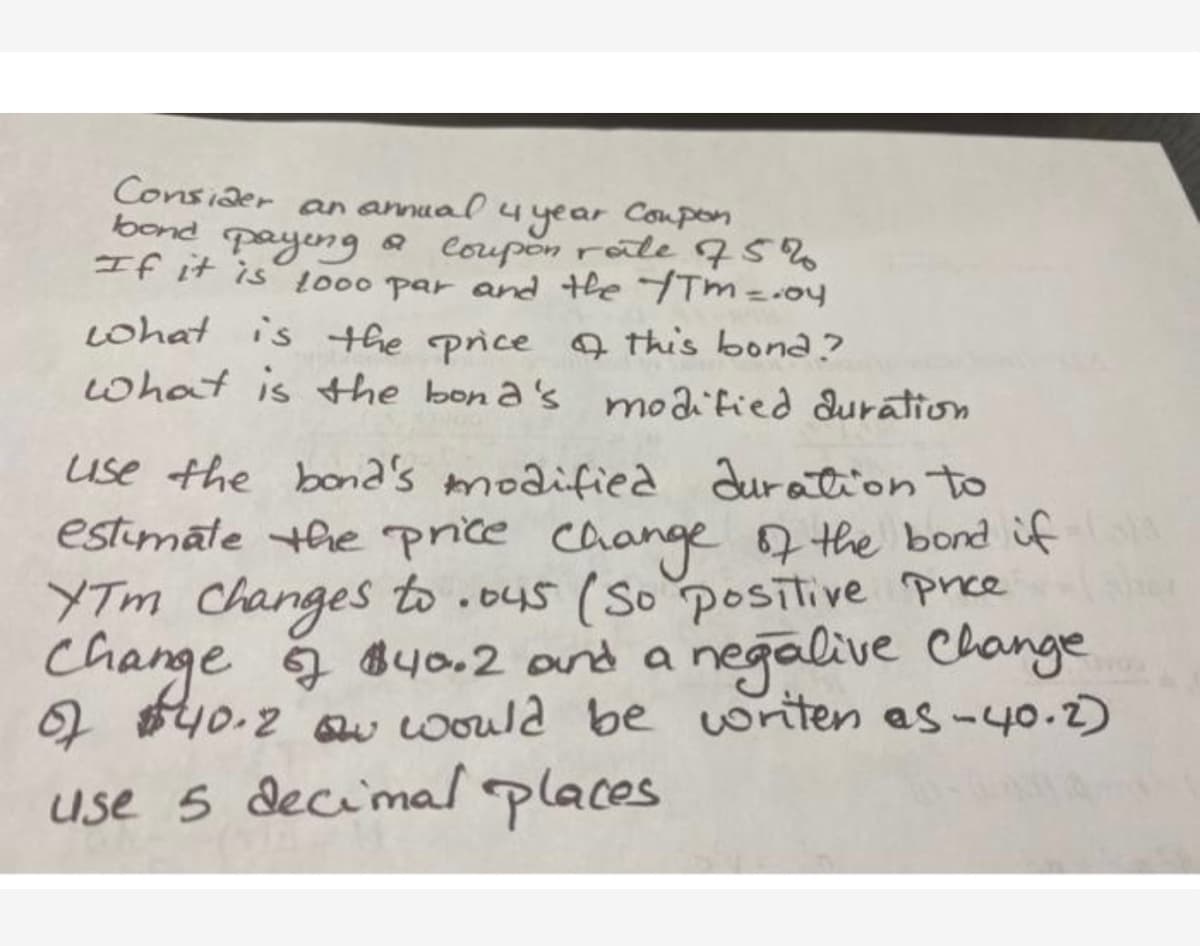 Consider an annual 4 year Coupon
bond payeng a coupon rate of 5%
If it is 1000 par and the YTm = .04
what is the price of this bond?
what is the bond's modified duration
use the bond's modified duration to
estimate the price change of the bond if
YTm changes to .045 (so positive price
change of $40.2 and a negative change
of $40.2 would be writen as -40.2)
use 5 decimal places